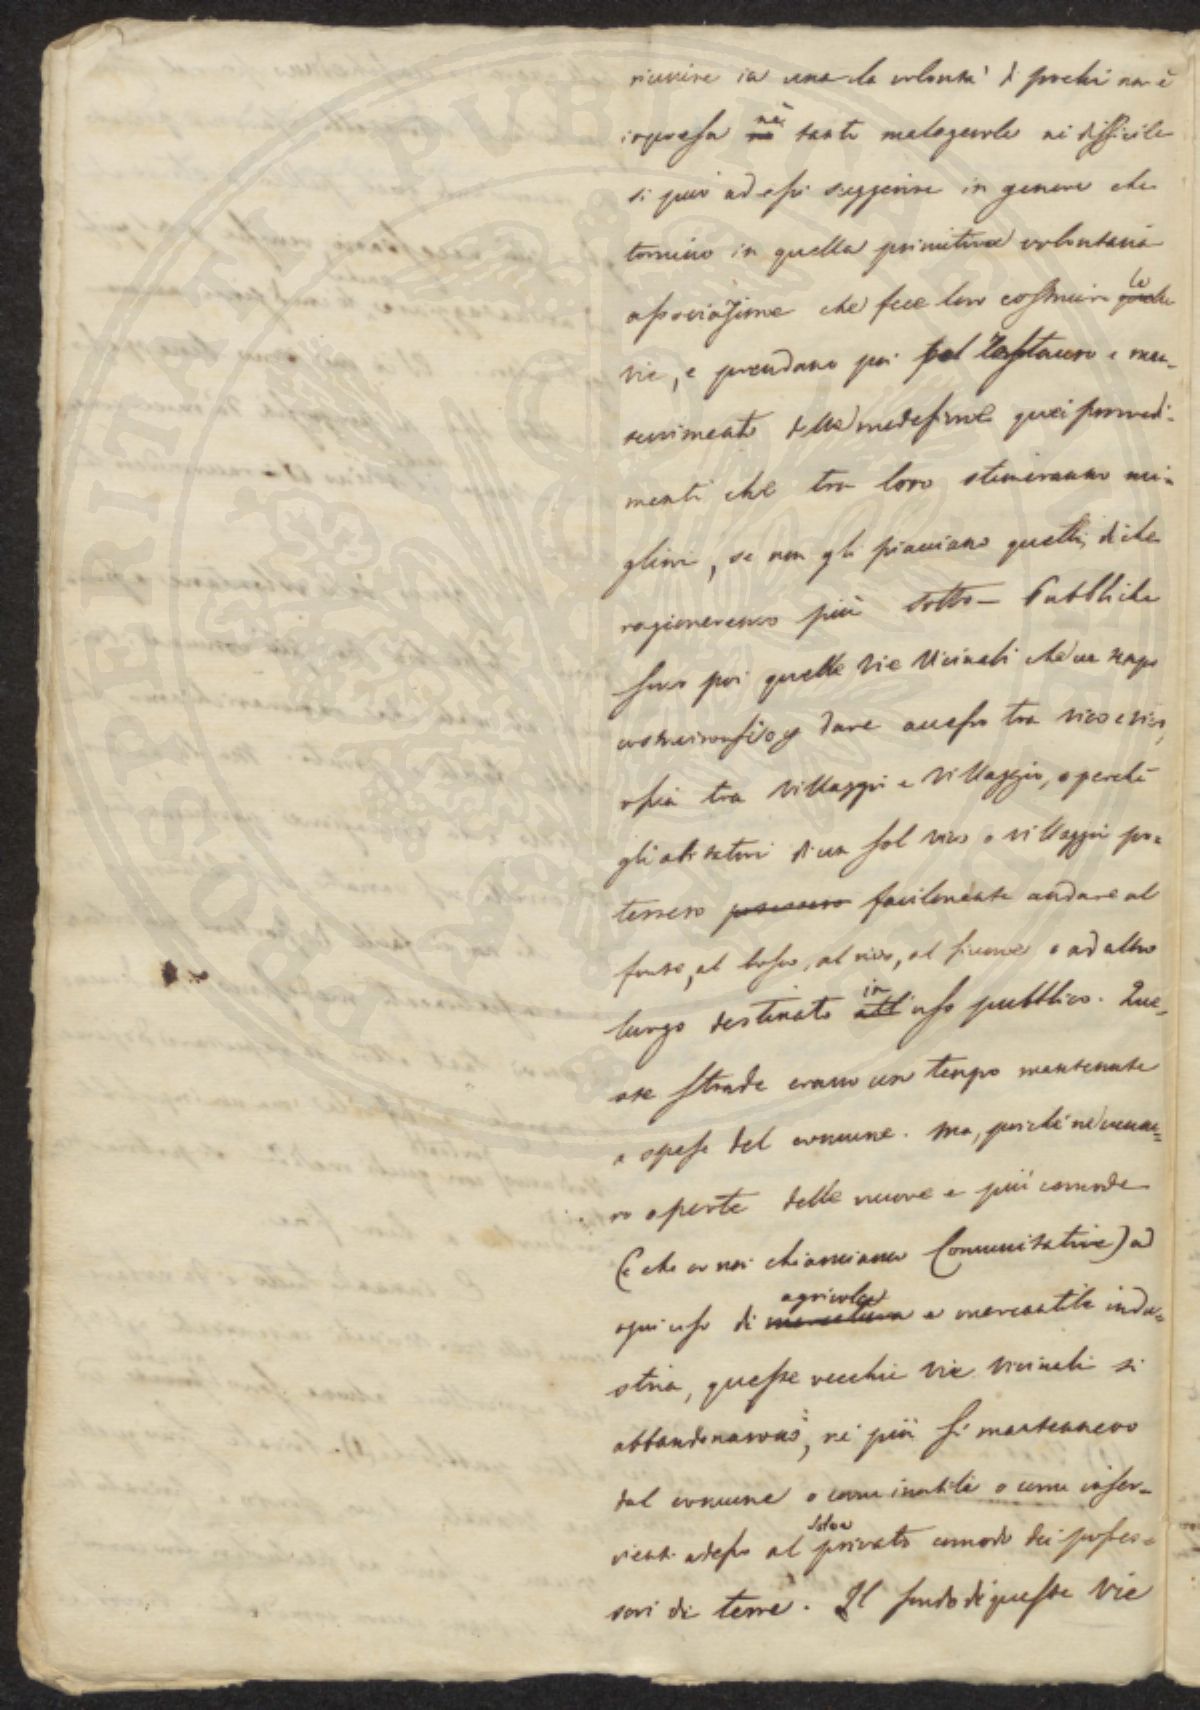 riunire in una la volontà di pochi non è
impresa nè tanto malagevole nè difficile
si può ad essi suggerire in genere che
tornino in quella primitiva volontaria
associazione che fece loro costruire le
vie, e prendano poi pel restauro e man-
tenimento delle medesime quei provvedi-
menti che tra loro stimeranno mi-
gliori, se non gli piacciano quelli, di che
ragioneremo più sotto — Pubbliche
sono poi quelle vie vicinali che un tempo
costruironsi o p dare accesso tra vico e vico,
ossia tra villaggio e villaggio, o perchè
gli abitatori di un sol vico o villaggio po-
tessero facilmente andare al
fonte, al bosco, al rivo, al fiume o ad altro
luogo destinato in uso pubblico. Que-
ste strade erano un tempo mantenute
a spese del comune. Ma, poichè ne venne-
ro aperte delle nuove e più comode
(e che or noi chiamiamo Comunitative) ad
ogni uso di agricola e mercantile indu-
stria, queste vecchie vie vicinali si
abbandonarono, nè più si mantennero
dal comune o come inutili o come inser-
vienti adesso al solo privato comodo dei posses-
sori di terre. Il fondo di queste vie